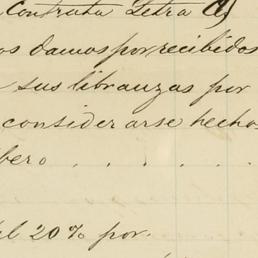 Contrata Letra C)
os damos por recibidos
sus libranzas por
considerarse hechos
bero . . . . .
el 20% por.